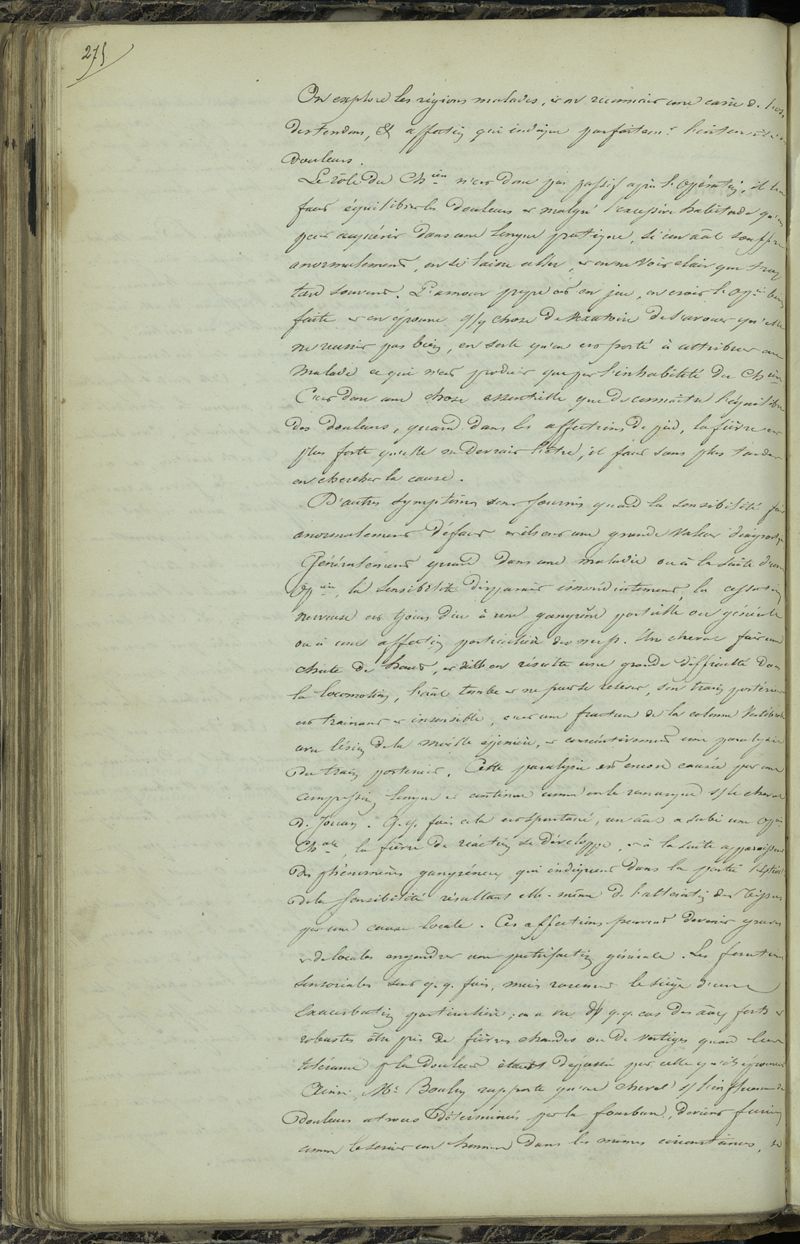 275
On explore les régions malades, et on reconnait une carie de l'os,
des tendons, &c affection qui indique parfaitemt l'intensité
douleurs.
Le rôle du Chien n'est donc pas passif après l'opération, il
faut équilibrer les douleurs et malgré l'excessive habitude qu'on
peut acquérir dans une longue pratique, si un aal souffre
anormalement, on se laisse aller, et on ne voit clair que trop
tard souvent. L'amour propre est en jeu, on croit l'opon bien
faite et on éprouve qq chose de de s'avouer qu'elle
ne reussit pas bien, en sorte qu'on est porté à attribuer au
malade ce qui n'est produit que par l'inhabileté du Chien
C'est donc une chose essentielle que de connaître l'équilibre
des douleurs, quand dans les affections de pied, la fièvre est
plus forte qu'elle ne devrait l'être, il faut sans plus tarder
en chercher la cause.
D'autres symptômes sont fournis quand la sensibilité fait
anormalement défaut et ils ont une grande valeur
Généralement quand dans une maladie ou à la suite d'une
opon, la sensibilité disparait, la cessation
nerveuse est tjours due à une gangrène partielle ou générale
ou à une affection particulière des nerfs. Un cheval fait une
chute de haut, et il en résulte une grande difficulté dans
la locomotion, l'aal tombe et ne peut se relever, son train postérieur
est trainant et insensible, c'est une fracture de la colonne vertébrale
avec lésion de la moëlle épinière, et consécutivement une paralysie
du train postérieur. Cette paralysie est encore causée par une
compression longue et continue comme on le remarque le cheval
D. Q.q. fois cela est spontané, un aal a subi une opon
Chale, la fièvre de réaction se développe, et à la suite apparaissent
des phénomènes gangréneux qui indiquent dans la partie
de la sensibilité résultant elle-même de l'atteinte des tissus
par une cause locale. Ces affections peuvent devenir graves
et de locales engendrer une putréfaction générale. Les fonctions
sensoriales sont q.q. fois, mais rarement le siège d'une
exacerbation particulière; on a vu ds q.q. cas des aaux forts et
robustes être pris de fièvres chaudes ou de vertiges quand leur
tolérance pr la douleur était dépassée par celle qu'ils éprouvent
Ainsi, Mr Bouley rapporte qu'un cheval l'influence de
douleurs atroces déterminées par la fourbure, devient furieux
comme le serait un homme dans les mêmes circonstances,